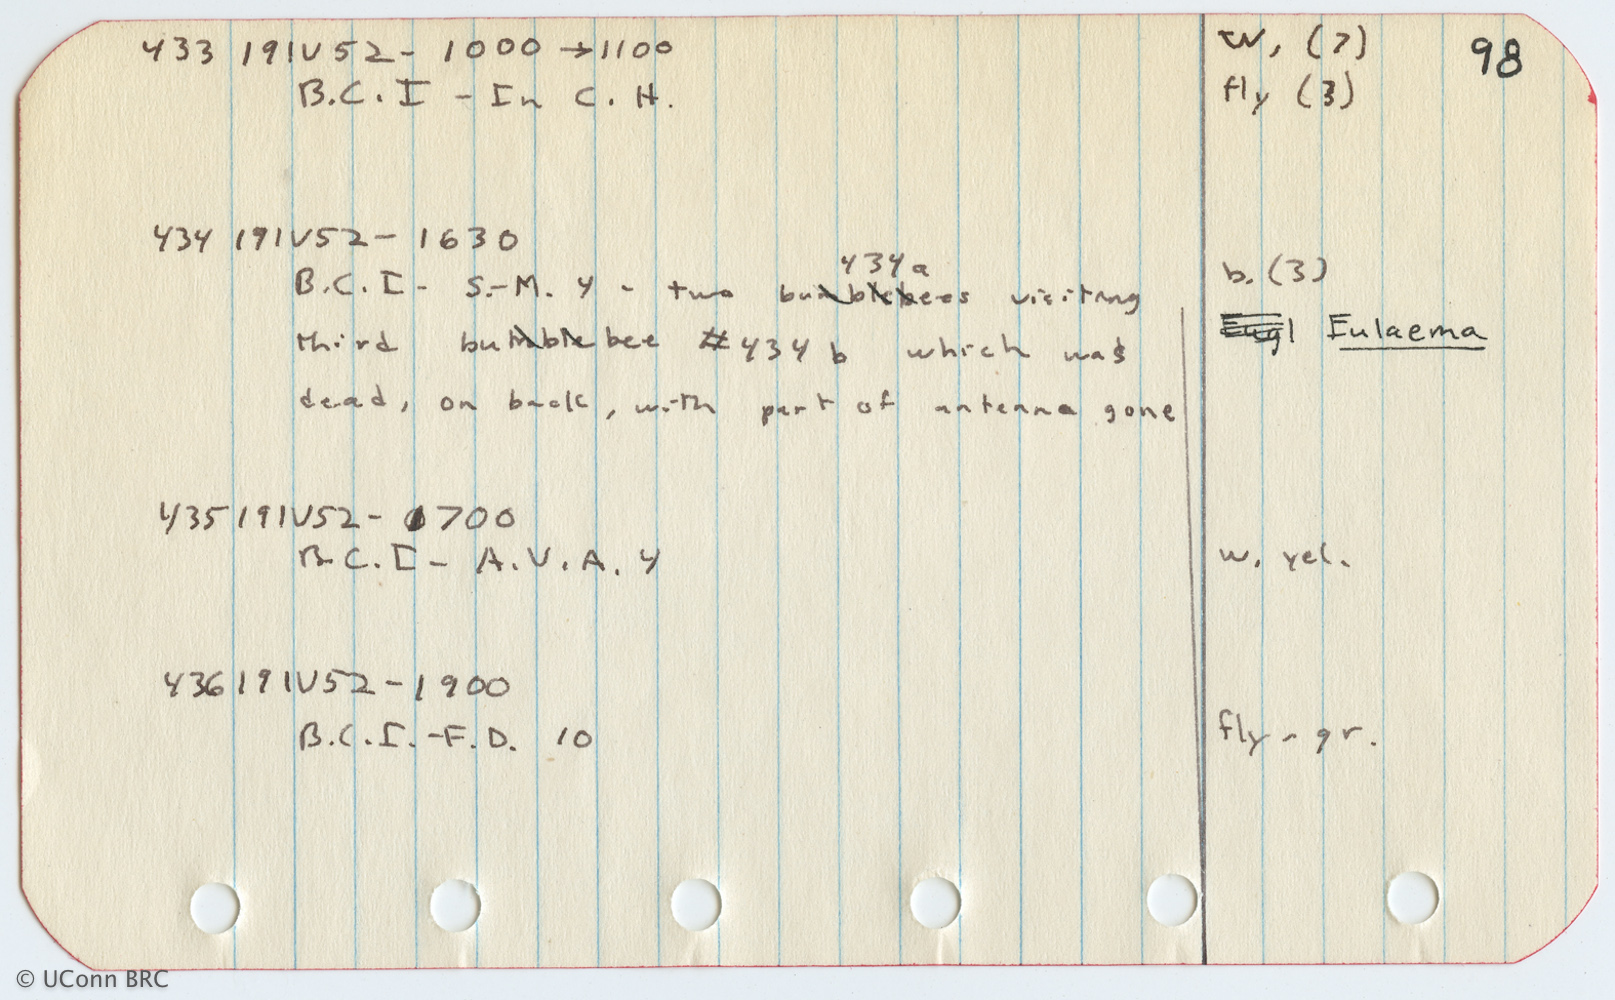 98
433 19IV52- 1000 → 1100
w, (7)
B.C.I - In C.H.
fly (3)
434 19IV52- 1630
434a
B.C.I- S.-M. 4 - two bumblebees visiting
b. (3)
third bumblebee #434b which was
Eugl Eulaema
dead, on back, with part of antenna gone
435 19IV52- 1700
B.C.I- A.V.A. 4
w. yel.
436 19IV52- 1900
B.C.I.-F.D. 10
fly - gr.
© UConn BRC